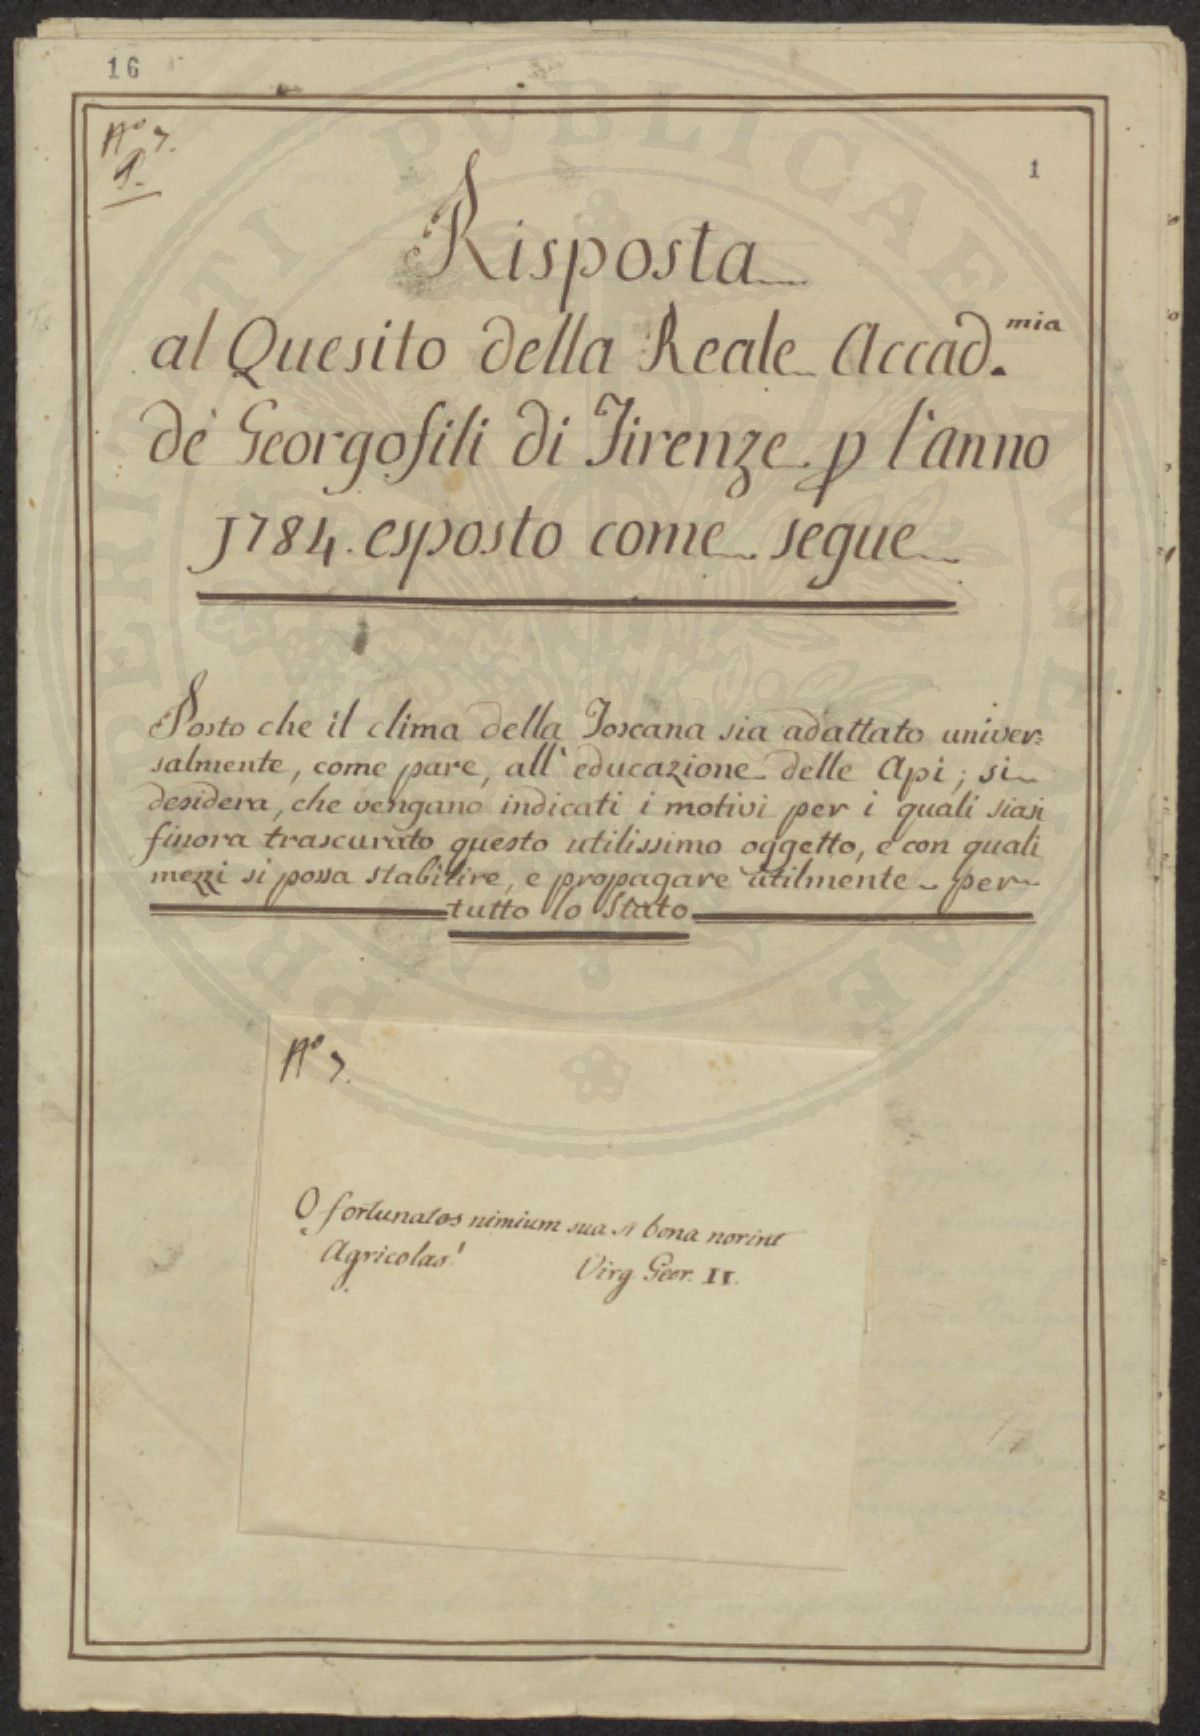 16
N.º 7.
1
Risposta
al Quesito della Reale Accad.mia
de' Georgofili di Firenze p l'anno
1784. esposto come segue
Posto che il clima della Toscana sia adattato univer=
salmente, come pare, all' educazione delle Api; si
desidera, che vengano indicati i motivi per i quali siasi
finora trascurato questo utilissimo oggetto, e con quali
mezzi si possa stabilire, e propagare utilmente per
tutto lo Stato
N.º 7.
O fortunatos nimium sua si bona norint
Agricolas!
Virg. Geor. II.
PROSPERITATI PVBLICAE AVGENDAE